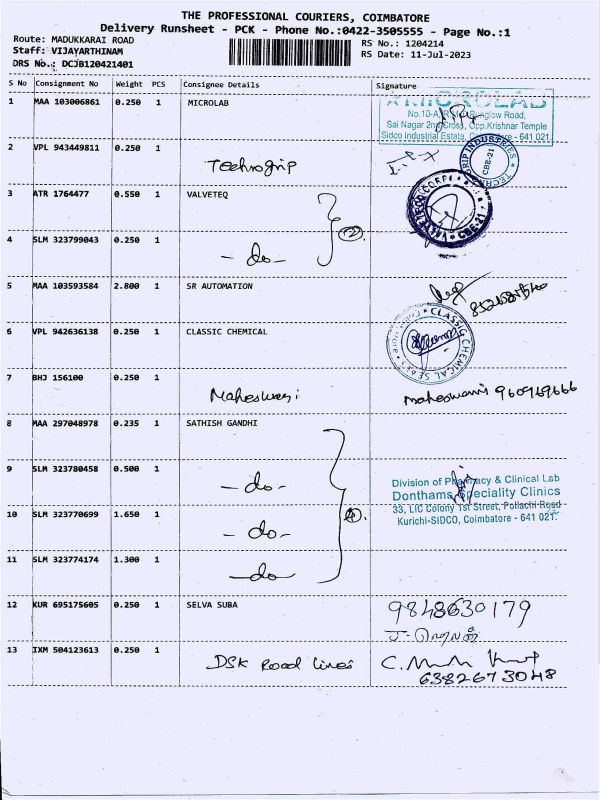 THE PROFESSIONAL COURIERS, COIMBATORE
Delivery Runsheet - PCK - Phone No.:0422-3505555 - Page No.:1
Route: MADUKKARAI ROAD
RS No.: 1204214
Staff: VIJAYARTHINAM
RS Date: 11-Jul-2023
DRS No.: DCJB120421401
S No Consignment No Weight PCS Consignee Details Signature
1 MAA 103006861 0.250 1 MICROLAB
MICROLAB
Sai Nagar 2nd Cross, Opp.Krishnar Temple
Sidco Industrial Estate, Coimbatore - 641 021
2 VPL 943449811 0.250 1
Technogrip
CBE-21
3 ATR 1764477 0.550 1 VALVETEQ
②
VALVETEQ CORP CBE-21
4 SLM 323799043 0.250 1
- do -
5 MAA 103593584 2.800 1 SR AUTOMATION
6 VPL 942636138 0.250 1 CLASSIC CHEMICAL
CLASSIC CHEMICAL
7 BHJ 156100 0.250 1
Maheswari
8 MAA 297048978 0.235 1 SATHISH GANDHI
9 SLM 323780458 0.500 1
- do -
④
Division of Pharmacy & Clinical Lab
Donthams Speciality Clinics
33, LIC Colony 1st Street, Pollachi Road
Kurichi-SIDCO, Coimbatore - 641 021.
10 SLM 323770699 1.650 1
- do -
11 SLM 323774174 1.300 1
- do
12 KUR 695175605 0.250 1 SELVA SUBA
9848630179
13 IXM 504123613 0.250 1
DSK Road lines
6382673048